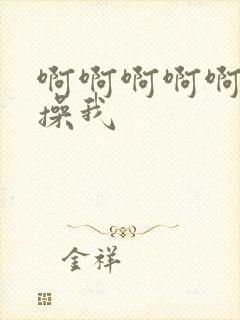 啊啊啊啊啊
操我
金祥